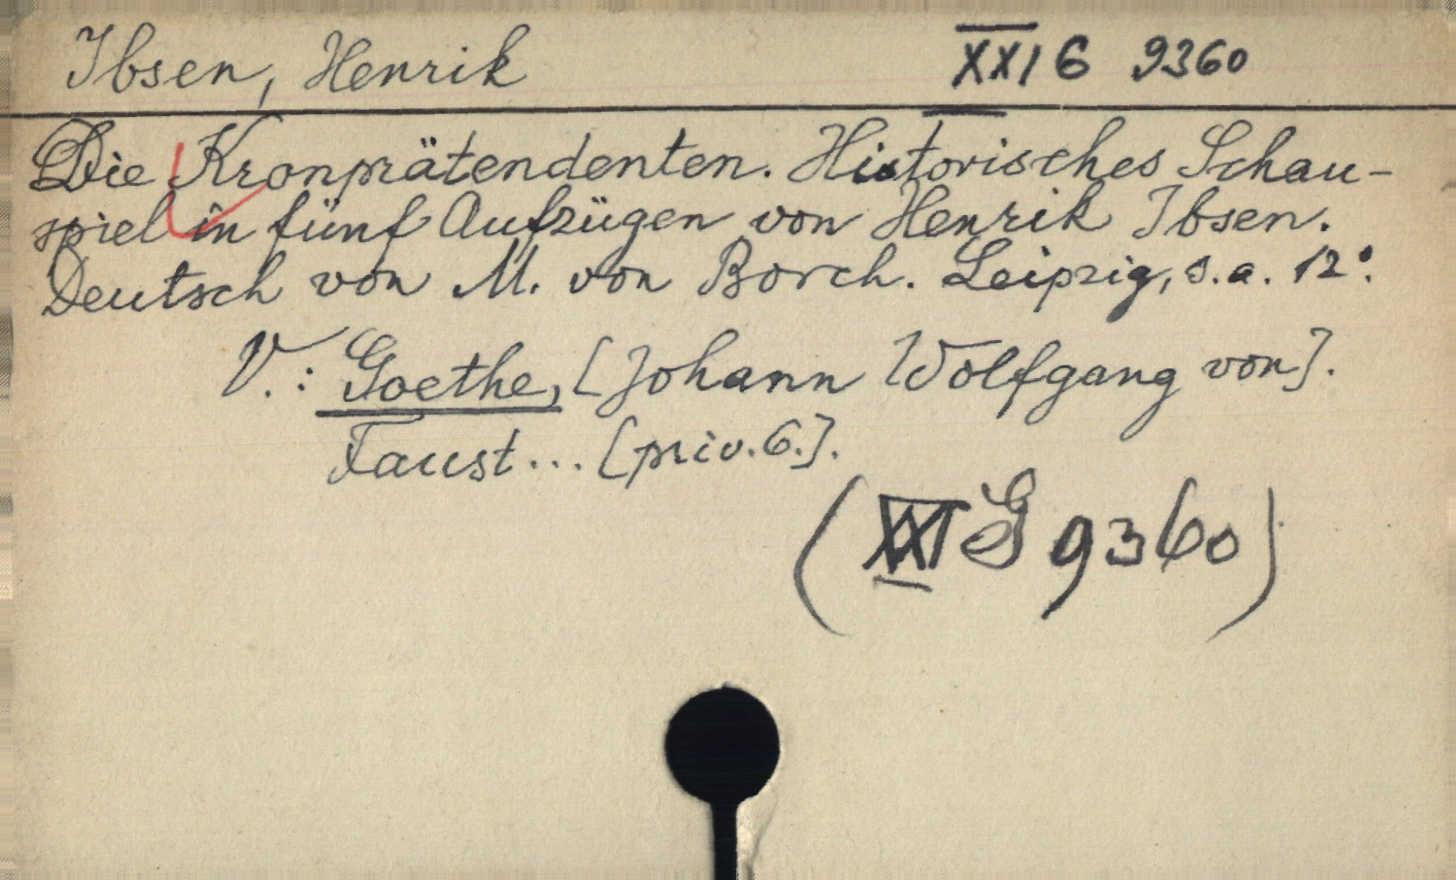 Ibsen, Henrik XXI G 9360
Die Kronprätendenten. Historisches Schau-
spiel in fünf Aufzügen von Henrik Ibsen.
Deutsch von M. von Borch. Leipzig, s.a. 12°.
V.: Goethe, [Johann Wolfgang von].
Faust... [priv. 6.].
(XXI G 9360)